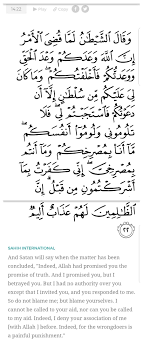 14:22
وَقَالَ ٱلشَّيْطَٰنُ لَمَّا قُضِىَ ٱلْأَمْرُ
إِنَّ ٱللَّهَ وَعَدَكُمْ وَعْدَ ٱلْحَقِّ
وَوَعَدتُّكُمْ فَأَخْلَفْتُكُمْ ۖ وَمَا كَانَ
لِىَ عَلَيْكُم مِّن سُلْطَٰنٍ إِلَّآ أَن
دَعَوْتُكُمْ فَٱسْتَجَبْتُمْ لِى ۖ فَلَا
تَلُومُونِى وَلُومُوٓا۟ أَنفُسَكُم ۖ
مَّآ أَنَا۠ بِمُصْرِخِكُمْ وَمَآ أَنتُم
بِمُصْرِخِىَّ ۖ إِنِّى كَفَرْتُ بِمَآ
أَشْرَكْتُمُونِ مِن قَبْلُ ۗ إِنَّ
ٱلظَّٰلِمِينَ لَهُمْ عَذَابٌ أَلِيمٌ
٢٢
SAHIH INTERNATIONAL
And Satan will say when the matter has been
concluded, "Indeed, Allah had promised you the
promise of truth. And I promised you, but I
betrayed you. But I had no authority over you
except that I invited you, and you responded to me.
So do not blame me; but blame yourselves. I
cannot be called to your aid, nor can you be called
to my aid. Indeed, I deny your association of me
[with Allah ] before. Indeed, for the wrongdoers is
a painful punishment."